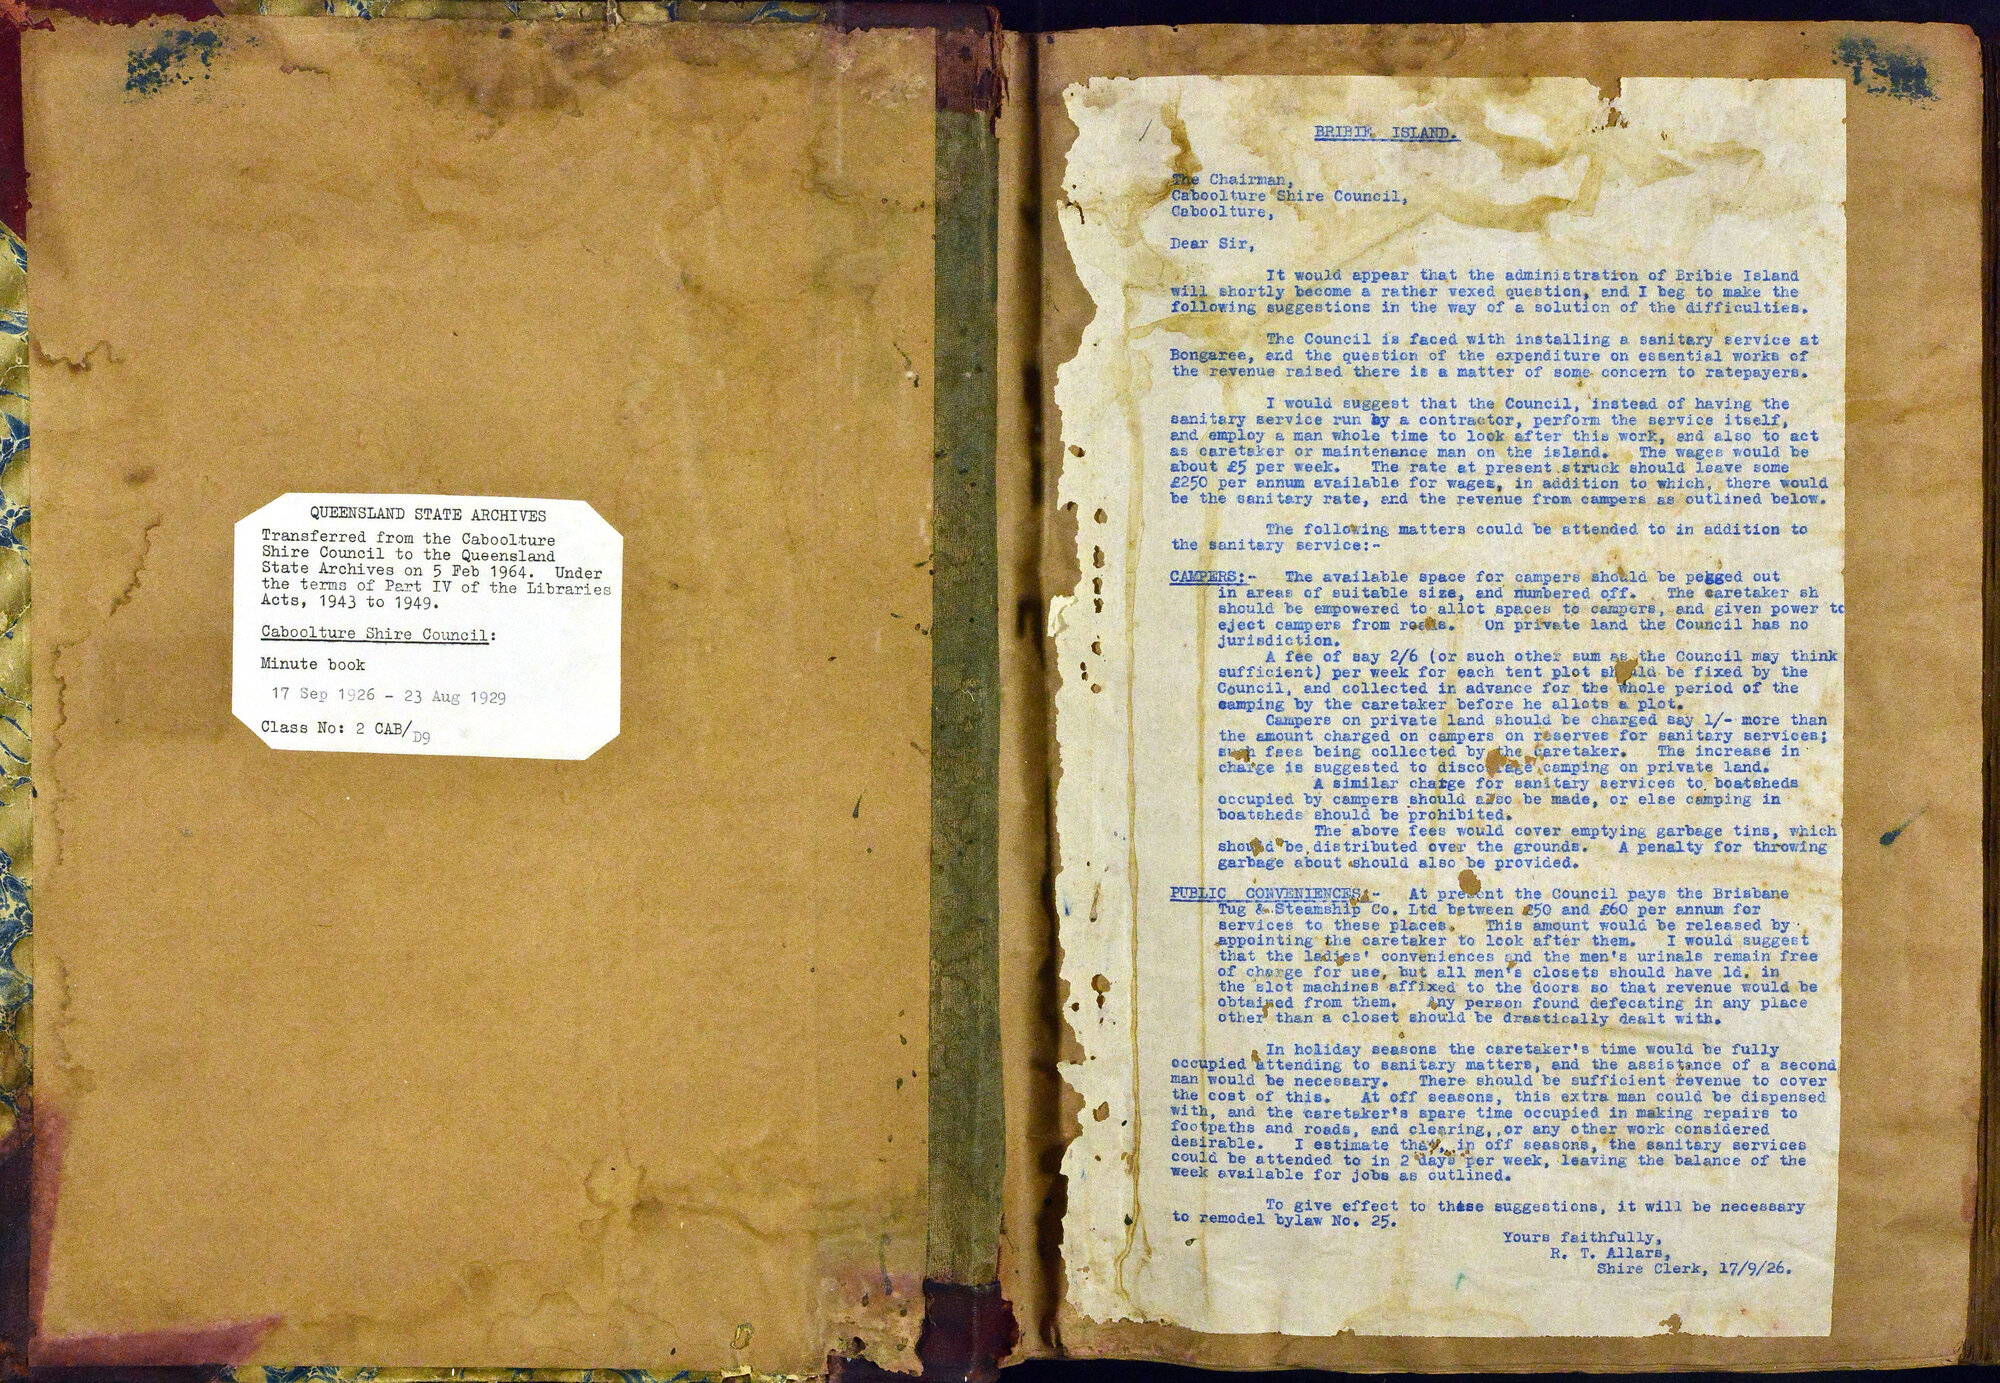 QUEENSLAND STATE ARCHIVES
Transferred from the Caboolture
Shire Council to the Queensland
State Archives on 5 Feb 1964. Under
the terms of Part IV of the Libraries
Acts, 1943 to 1949.
Caboolture Shire Council:
Minute book
17 Sep 1926 - 23 Aug 1929
Class No: 2 CAB/D9
BRIBIE ISLAND.
The Chairman,
Caboolture Shire Council,
Caboolture,
Dear Sir,
It would appear that the administration of Bribie Island
will shortly become a rather vexed question, and I beg to make the
following suggestions in the way of a solution of the difficulties.
The Council is faced with installing a sanitary service at
Bongaree, and the question of the expenditure on essential works of
the revenue raised there is a matter of some concern to ratepayers.
I would suggest that the Council, instead of having the
sanitary service run by a contractor, perform the service itself,
and employ a man whole time to look after this work, and also to act
as caretaker or maintenance man on the island. The wages would be
about £5 per week. The rate at present struck should leave some
£250 per annum available for wages, in addition to which, there would
be the sanitary rate, and the revenue from campers as outlined below.
The following matters could be attended to in addition to
the sanitary service:-
CAMPERS:- The available space for campers should be pegged out
in areas of suitable size, and numbered off. The caretaker sh
should be empowered to allot spaces to campers, and given power to
eject campers from roads. On private land the Council has no
jurisdiction.
A fee of say 2/6 (or such other sum as the Council may think
sufficient) per week for each tent plot should be fixed by the
Council, and collected in advance for the whole period of the
camping by the caretaker before he allots a plot.
Campers on private land should be charged say 1/- more than
the amount charged on campers on reserves for sanitary services;
such fees being collected by the caretaker. The increase in
charge is suggested to discourage camping on private land.
A similar charge for sanitary services to boatsheds
occupied by campers should also be made, or else camping in
boatsheds should be prohibited.
The above fees would cover emptying garbage tins, which
should be distributed over the grounds. A penalty for throwing
garbage about should also be provided.
PUBLIC CONVENIENCES:- At present the Council pays the Brisbane
Tug & Steamship Co. Ltd between £50 and £60 per annum for
services to these places. This amount would be released by
appointing the caretaker to look after them. I would suggest
that the ladies' conveniences and the men's urinals remain free
of charge for use, but all men's closets should have 1d. in
the slot machines affixed to the doors so that revenue would be
obtained from them. Any person found defecating in any place
other than a closet should be drastically dealt with.
In holiday seasons the caretaker's time would be fully
occupied attending to sanitary matters, and the assistance of a second
man would be necessary. There should be sufficient revenue to cover
the cost of this. At off seasons, this extra man could be dispensed
with, and the caretaker's spare time occupied in making repairs to
footpaths and roads, and clearing, or any other work considered
desirable. I estimate that, in off seasons, the sanitary services
could be attended to in 2 days per week, leaving the balance of the
week available for jobs as outlined.
To give effect to these suggestions, it will be necessary
to remodel bylaw No. 25.
Yours faithfully,
R. T. Allars,
Shire Clerk, 17/9/26.